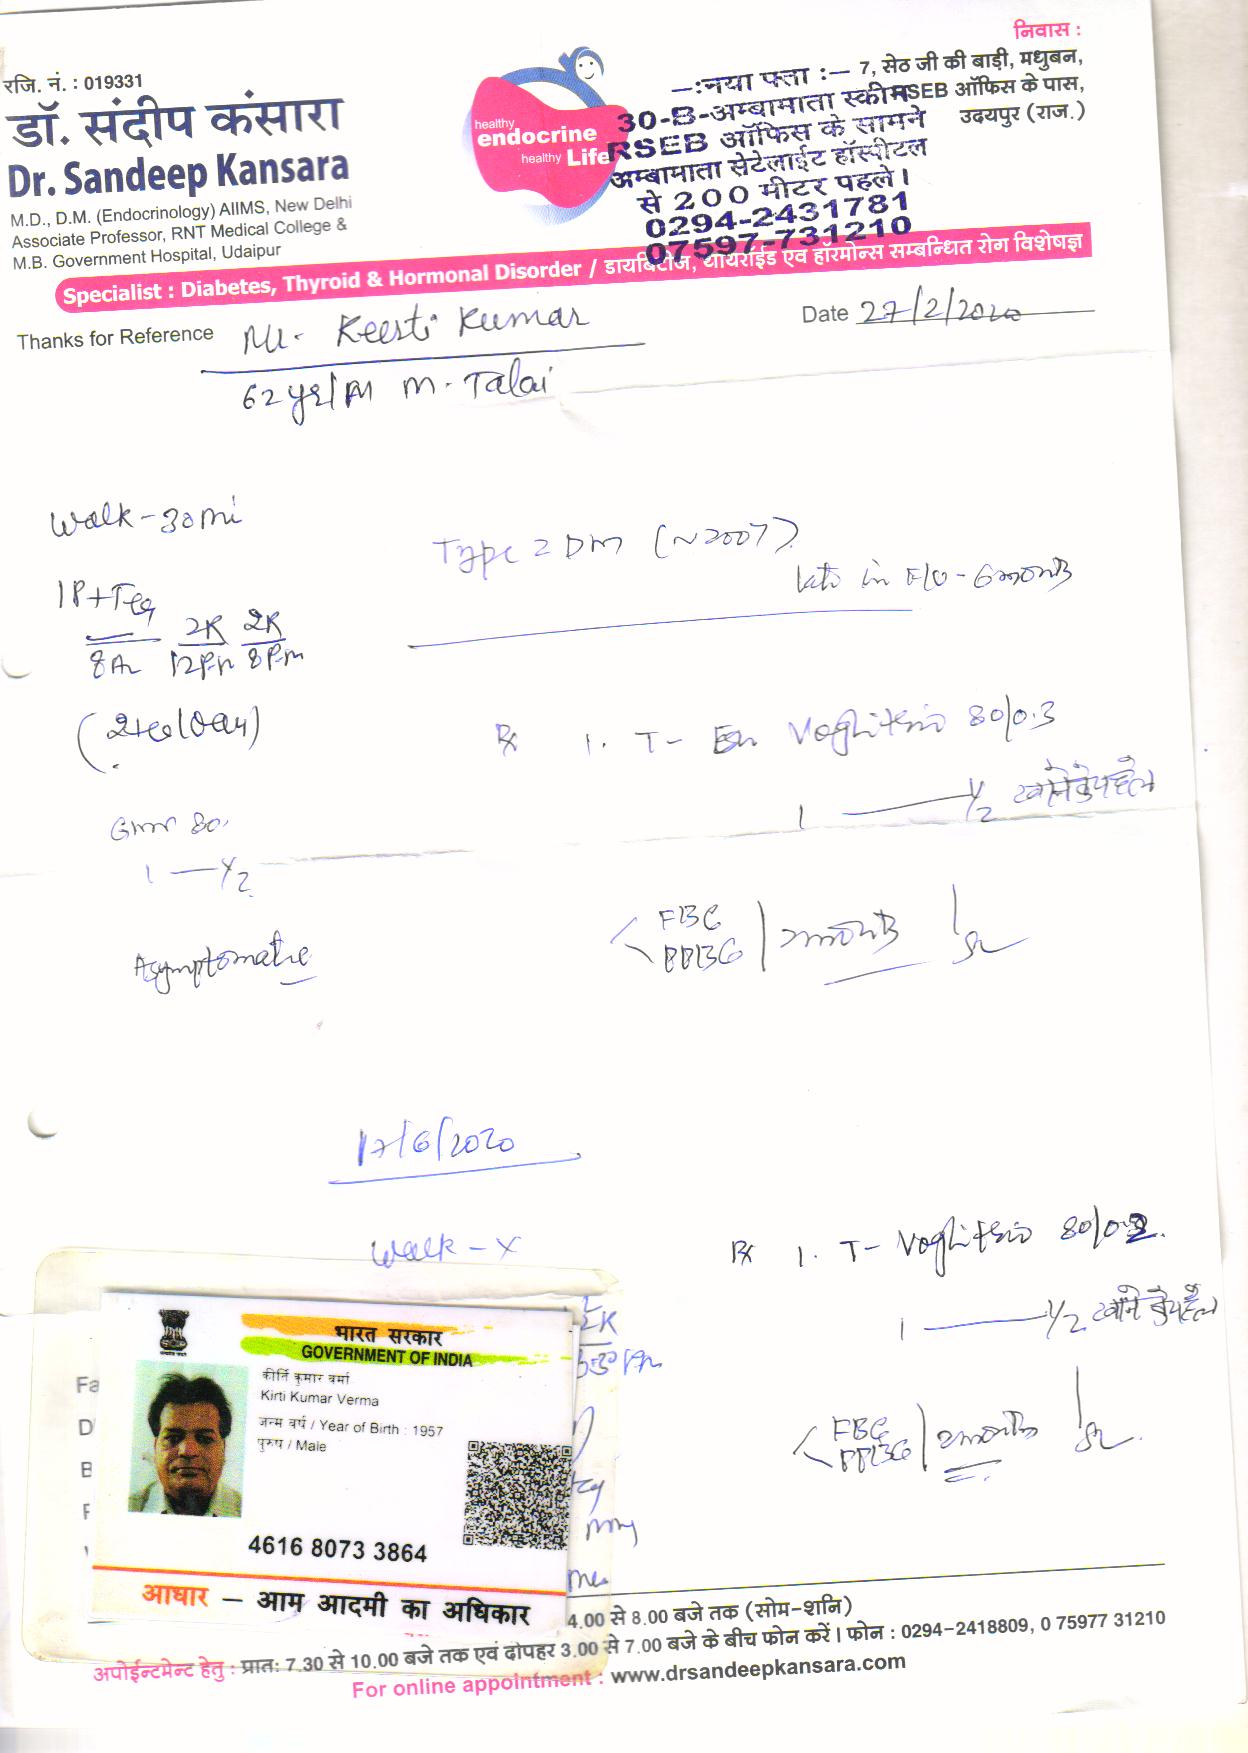 निवास :
रजि. नं. : 019331
डॉ. संदीप कंसारा
Dr. Sandeep Kansara
M.D., D.M. (Endocrinology) AIIMS, New Delhi
Associate Professor, RNT Medical College &
M.B. Government Hospital, Udaipur
healthy
endocrine
healthy Life
7, सेठ जी की बाड़ी, मधुबन,
RSEB ऑफिस के पास,
उदयपुर (राज.)
—:नया पता :—
30-B-अम्बामाता स्कीम
RSEB ऑफिस के सामने
अम्बामाता सेटेलाईट हॉस्पीटल
से 200 मीटर पहले।
0294-2431781
07597-731210
Specialist : Diabetes, Thyroid & Hormonal Disorder / डायबिटीज, थायराईड एवं हॉरमोन्स सम्बन्धित रोग विशेषज्ञ
Thanks for Reference Mr. Keerti Kumar
Date 27/2/2020
62 yr/M M. Talai
Walk - 30 mi
Type 2 DM (~2007)
late in F/U - 6 months
1P + Tea
2R 2R
8Am 12Pm 8Pm
Rx 1. T- Voglitrio 80/0.3
1 — 1/2 खाने के पहले
80
1 — 1/2
Asymptomatic
FBG
PPBG
2 months
17/6/2020
Walk - X
Rx 1. T- Voglitrio 80/0.2
1 — 1/2 खाने के पहले
FBG
PPBG
2 months
भारत सरकार
GOVERNMENT OF INDIA
कीर्ति कुमार वर्मा
Kirti Kumar Verma
जन्म वर्ष / Year of Birth : 1957
पुरुष / Male
4616 8073 3864
आधार – आम आदमी का अधिकार
4.00 से 8.00 बजे तक (सोम-शनि)
अपोईन्टमेन्ट हेतु : प्रातः 7.30 से 10.00 बजे तक एवं दोपहर 3.00 से 7.00 बजे के बीच फोन करें। फोन : 0294-2418809, 0 75977 31210
For online appointment : www.drsandeepkansara.com